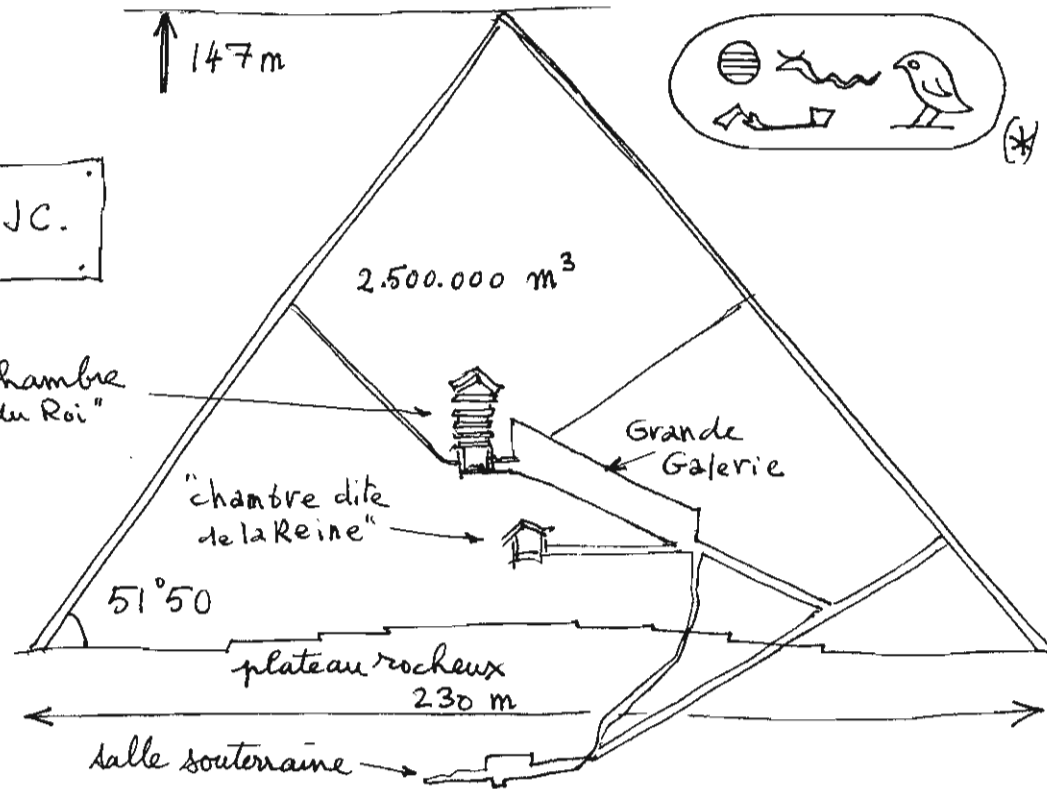 147 m
(*)
JC.
2.500.000 m³
chambre
du Roi"
Grande
Galerie
"chambre dite
de la Reine"
51°50
plateau rocheux
230 m
salle souterraine